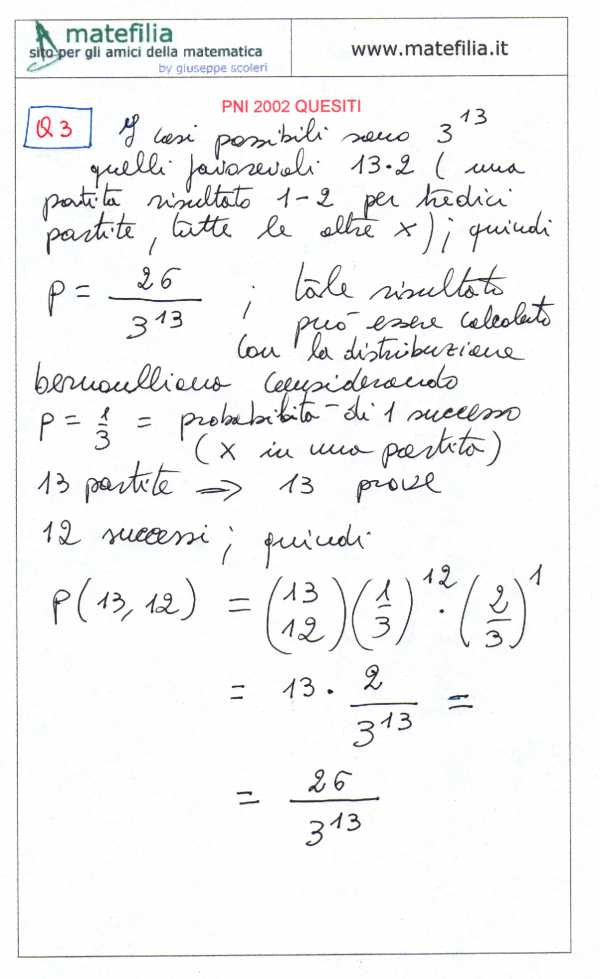 matefilia
sito per gli amici della matematica
by giuseppe scoleri
www.matefilia.it
PNI 2002 QUESITI
Q3
I casi possibili sono 3^13
quelli favorevoli 13·2 ( una
partita risultato 1-2 per tredici
partite, tutte le altre x); quindi
p = 26/3^13 ; tale risultato
può essere calcolato
con la distribuzione
bernoulliana considerando
p = 1/3 = probabilità di 1 successo
(x in una partita)
13 partite ⟹ 13 prove
12 successi; quindi
p(13,12) = (13 12)(1/3)^12 · (2/3)^1
= 13 · 2/3^13 =
= 26/3^13